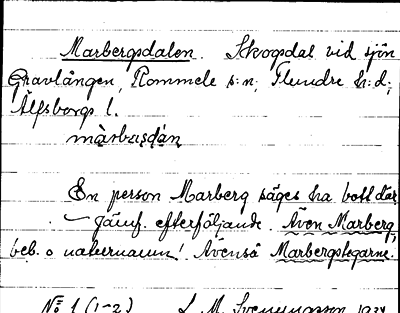 Marbergsdalen. Skogsdal vid sjön
Gravlången, Rommele s:n, Flundre h:d,
Älfsborgs l.
En person Marberg säges ha bott där
. — Jämf. efterföljande. Även Marberg,
beb. o naturnamn! Ävenså Marbergstegarne.
No 1 (1-2) S. M. Svenungsson 1934